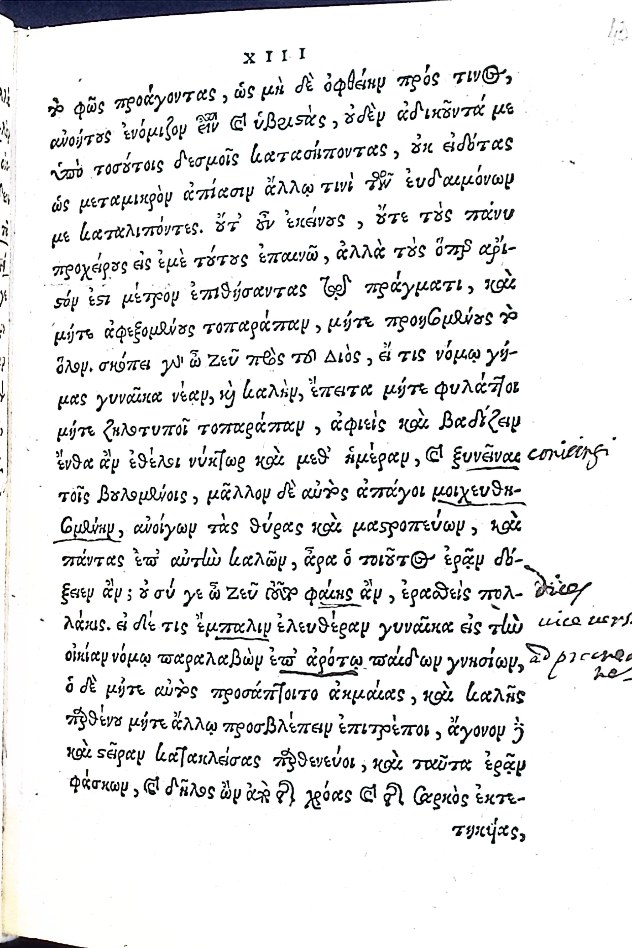 XIII
τὸ φῶς προάγοντας, ὡς μὴ δὲ ὀφθείην πρός τινος,
ἀνοήτους ἐνόμιζον εἶναι καὶ ὑβριστὰς, οὐδὲν ἀδικοῦντά με
ὑπὸ τοσούτοις δεσμοῖς κατασήποντας, οὐκ εἰδότας
ὡς μεταμικρὸν ἀπίασιν ἄλλῳ τινὶ τῶν εὐδαιμόνων
με καταλιπόντες. οὔτ' οὖν ἐκείνους, οὔτε τοὺς πάνυ
προχείρους εἰς ἐμὲ τούτους ἐπαινῶ, ἀλλὰ τοὺς ὅπερ ἄρι-
στόν ἐστι μέτρον ἐπιθήσαντας τῷ πράγματι, καὶ
μήτε ἀφεξομένους τοπαράπαν, μήτε προησομένους τὸ
ὅλον. σκόπει γὰρ ὦ Ζεῦ πρὸς τοῦ Διός, εἴ τις νόμῳ γή-
μας γυναῖκα νέαν, καὶ καλὴν, ἔπειτα μήτε φυλάττοι
μήτε ζηλοτυποῖ τοπαράπαν, ἀφιεὶς καὶ βαδίζειν
ἔνθα ἂν ἐθέλοι νύκτωρ καὶ μεθ' ἡμέραν, καὶ ξυνεῖναι
τοῖς βουλομένοις, μᾶλλον δὲ αὐτὸς ἀπάγοι μοιχευθη-
σομένην, ἀνοίγων τὰς θύρας καὶ μαστροπεύων, καὶ
πάντας ἐπ' αὐτὴν καλῶν, ἆρα ὁ τοιοῦτος ἐρᾶν δό-
ξειεν ἄν; οὐ σύ γε ὦ Ζεῦ τοῦτο φαίης ἂν, ἐρασθεὶς πολ-
λάκις. εἰ δέ τις ἔμπαλιν ἐλευθέραν γυναῖκα εἰς τὴν
οἰκίαν νόμῳ παραλαβὼν ἐπ' ἀρότῳ παίδων γνησίων,
ὁ δὲ μήτε αὐτὸς προσάπτοιτο ἀκμαίας, καὶ καλῆς
παρθένου μήτε ἄλλῳ προσβλέπειν ἐπιτρέποι, ἄγονον δὲ
καὶ στεῖραν κατακλείσας παρθενεύοι, καὶ ταῦτα ἐρᾶν
φάσκων, καὶ δῆλος ὢν ἀπὸ τῆς χρόας καὶ τῆς σαρκὸς ἐκτε-
τηκυίας,
dices
vice vers.